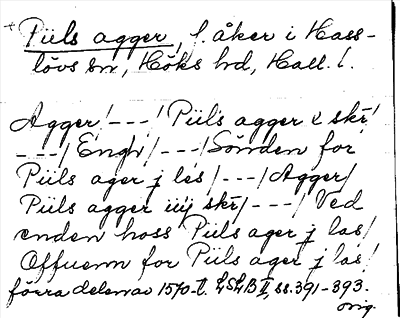 + Piils agger, f. åker i Hass-
lövs sn, Höks hd, Hall. l.
Agger/---/ Piils agger 2 skr/
---/ Engh/---/ Sönden for
Piils ager j les/---/ Agger/
Piils agger iiij skr/---/ Ved
enden hoss Piils ager j las/
Offuenn for Piils ager j las/
förra delen av 1570-t. LSLB II, ss. 391-393.
orig.